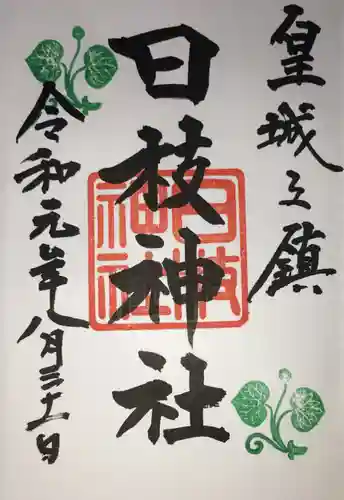 皇城之鎮
日枝神社
日枝神社
令和元年八月三十一日